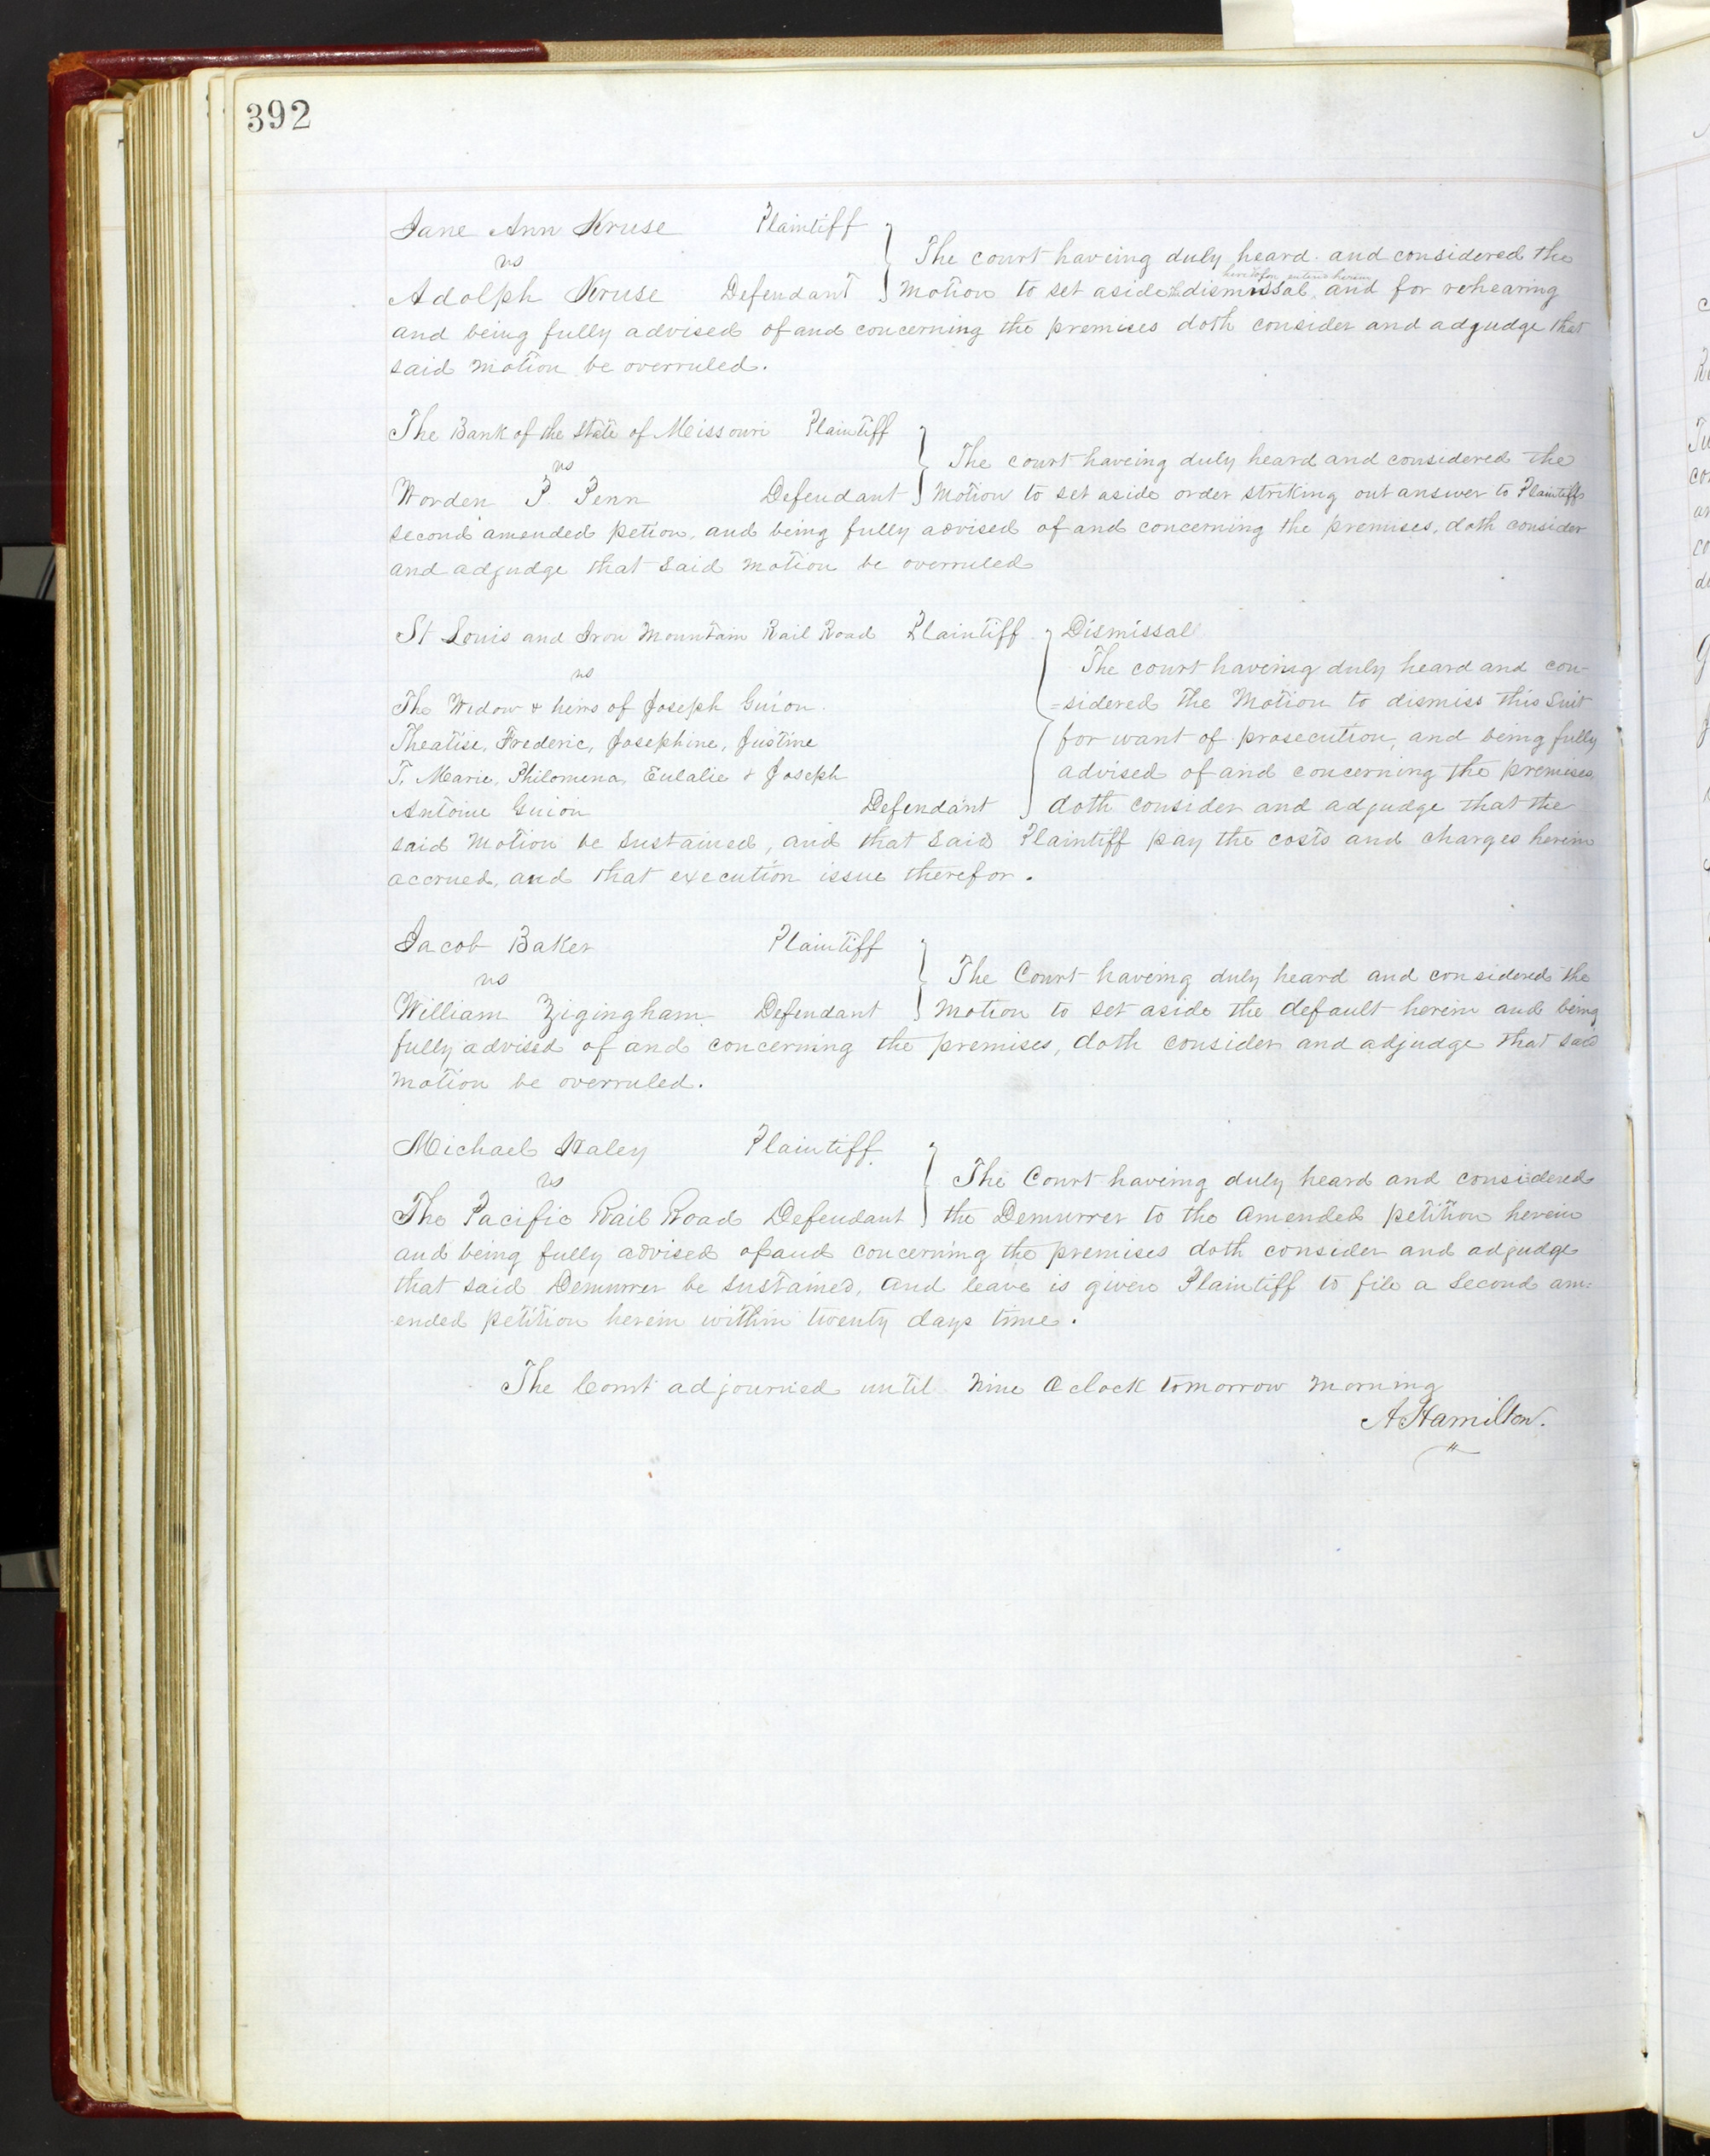 392
Jane Ann Kruse Plaintiff
vs
Adolph Kruse Defendant
The court having duly heard and considered the
heretofore entered herein
Motion to set aside the dismissal and for rehearing
and being fully advised of and concerning the premises doth consider and adjudge that
said motion be overruled.
The Bank of the State of Missouri Plaintiff
vs
Worden P Penn Defendant
The court haveing duly heard and considered the
Motion to set aside order striking out answer to Plaintiffs
second amended petion, and being fully advised of and concerning the premises, doth consider
and adjudge that said motion be overruled
St Louis and Iron Mountain Rail Road Plaintiff
vs
The Widow & heirs of Joseph Guion.
Theatise, Frederic, Josephine, Justine
T. Marie, Philomena, Eulalie & Joseph
Antoine Guion Defendant
Dismissal
The court having duly heard and con-
=sidered the Motion to dismiss this suit
for want of prosecution, and being fully
advised of and concerning the premises,
doth consider and adjudge that the
said Motion be sustained, and that said Plaintiff pay the costs and charges herein
accrued, and that execution issue therefor.
Jacob Baker Plaintiff
vs
William Zigingham Defendant
The Court having duly heard and considered the
motion to set aside the default herein and being
fully advised of and concerning the premises, doth consider and adjudge that said
motion be overruled.
Michael Haley Plaintiff.
vs
The Pacific Rail Road Defendant
The Court having duly heard and considered
the Demurrer to the amended petition herein
and being fully advised of and concerning the premises doth consider and adjudge
that said Demurrer be sustained, and leave is given Plaintiff to file a second am=
ended petition herein within twenty days time.
The Court adjourned until Nine O clock tomorrow morning
A Hamilton.